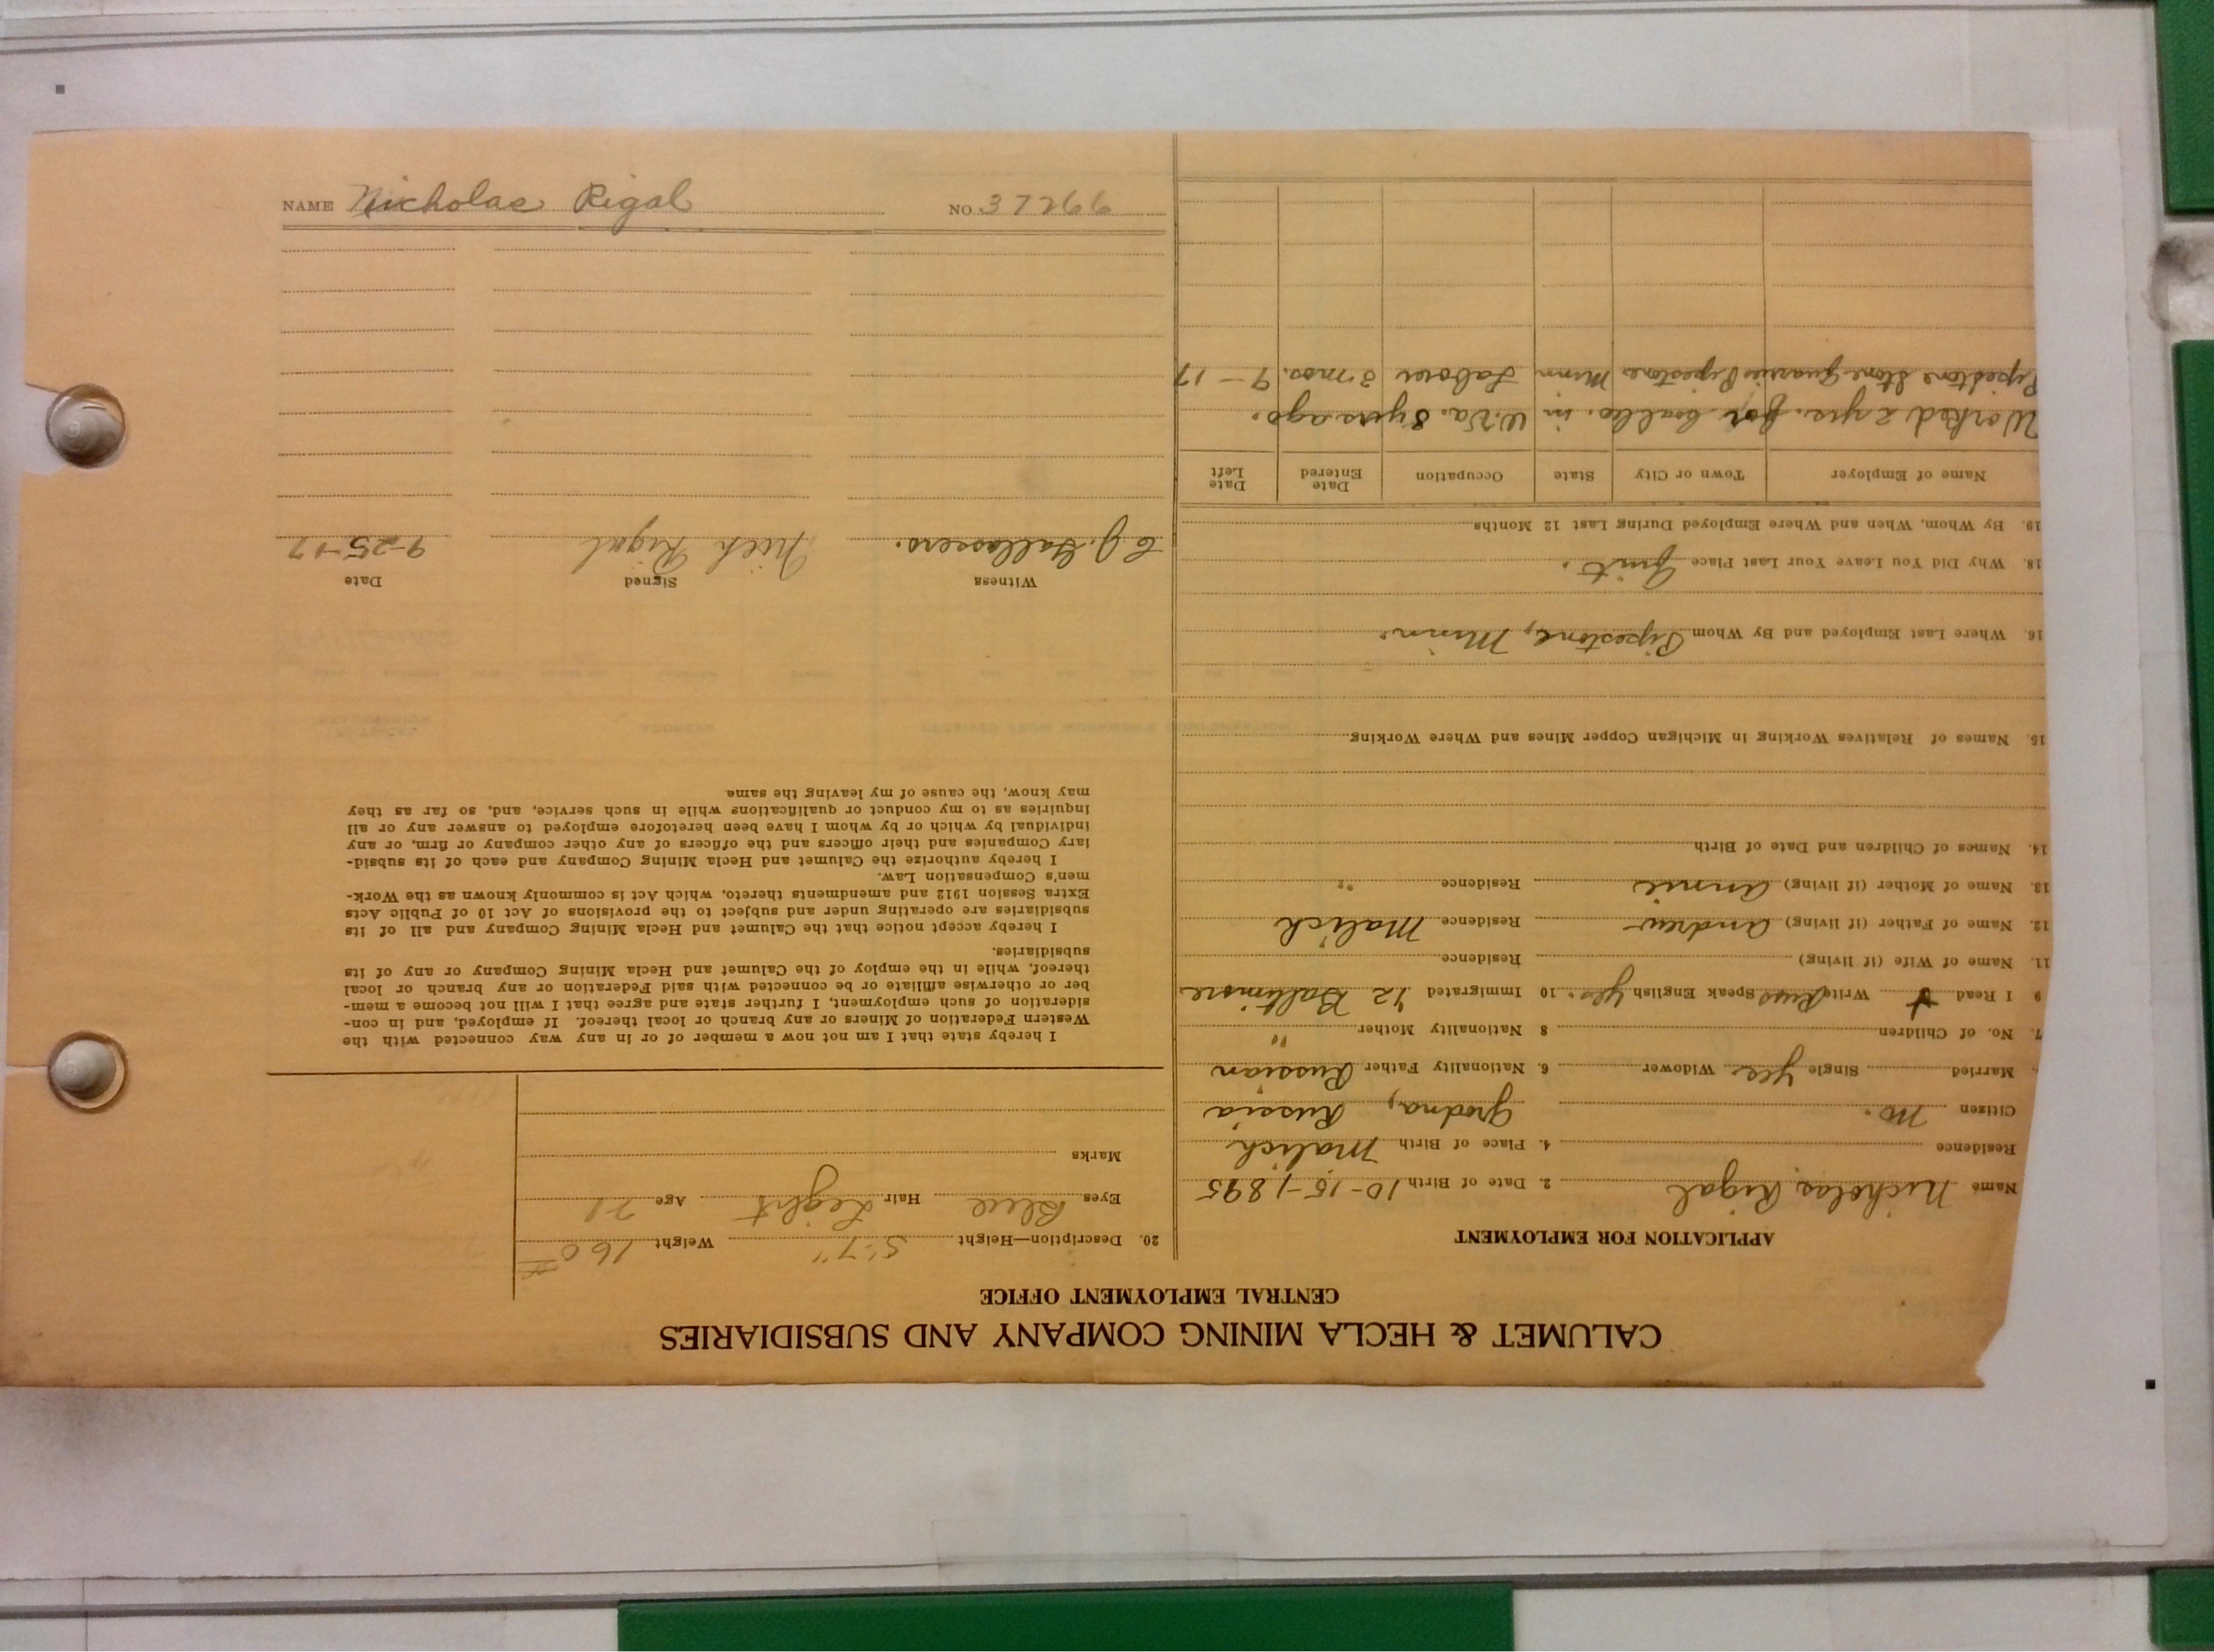 CALUMET & HECLA MINING COMPANY AND SUBSIDIARIES
CENTRAL EMPLOYMENT OFFICE
APPLICATION FOR EMPLOYMENT
Name Nicholas Rigal 2. Date of Birth 10-15-1895
Residence 4. Place of Birth Malich
Citizen no. Grodna, Russia
Married Single yes Widower 6. Nationality Father Russian
7. No. of Children 8 Nationality Mother "
9 I Read Write Russ Speak English yes. 10 Immigrated '12 Baltimore
11. Name of Wife (if living) Residence
12. Name of Father (if living) Andrew Residence Malich
13. Name of Mother (if living) Annie Residence "
14. Names of Children and Date of Birth
15. Names of Relatives Working in Michigan Copper Mines and Where Working
16. Where Last Employed and By Whom Pipestone, Minn.
18. Why Did You Leave Your Last Place Quit.
19. By Whom, When and Where Employed During Last 12 Months
Name of Employer Town or City State Occupation Date Entered Date Left
Worked 2 yrs. for coal co. in W.Va. 3 yrs ago.
Pipestone Stone Quarries Pipestone Minn Laborer 3 mos. 9-17
20. Description—Height 5'-7" Weight 160#
Eyes Blue Hair Light Age 21
Marks
I hereby state that I am not now a member of or in any way connected with the
Western Federation of Miners or any branch or local thereof. If employed, and in con-
sideration of such employment, I further state and agree that I will not become a mem-
ber or otherwise affiliate or be connected with said Federation or any branch or local
thereof, while in the employ of the Calumet and Hecla Mining Company or any of its
subsidiaries.
I hereby accept notice that the Calumet and Hecla Mining Company and all of its
subsidiaries are operating under and subject to the provisions of Act 10 of Public Acts
Extra Session 1912 and amendments thereto, which Act is commonly known as the Work-
men's Compensation Law.
I hereby authorize the Calumet and Hecla Mining Company and each of its subsid-
iary Companies and their officers and the officers of any other company or firm, or any
individual by which or by whom I have been heretofore employed to answer any or all
inquiries as to my conduct or qualifications while in such service, and, so far as they
may know, the cause of my leaving the same
Witness Signed Date
Nick Rigal 9-25-17
NAME Nicholas Rigal NO. 37266